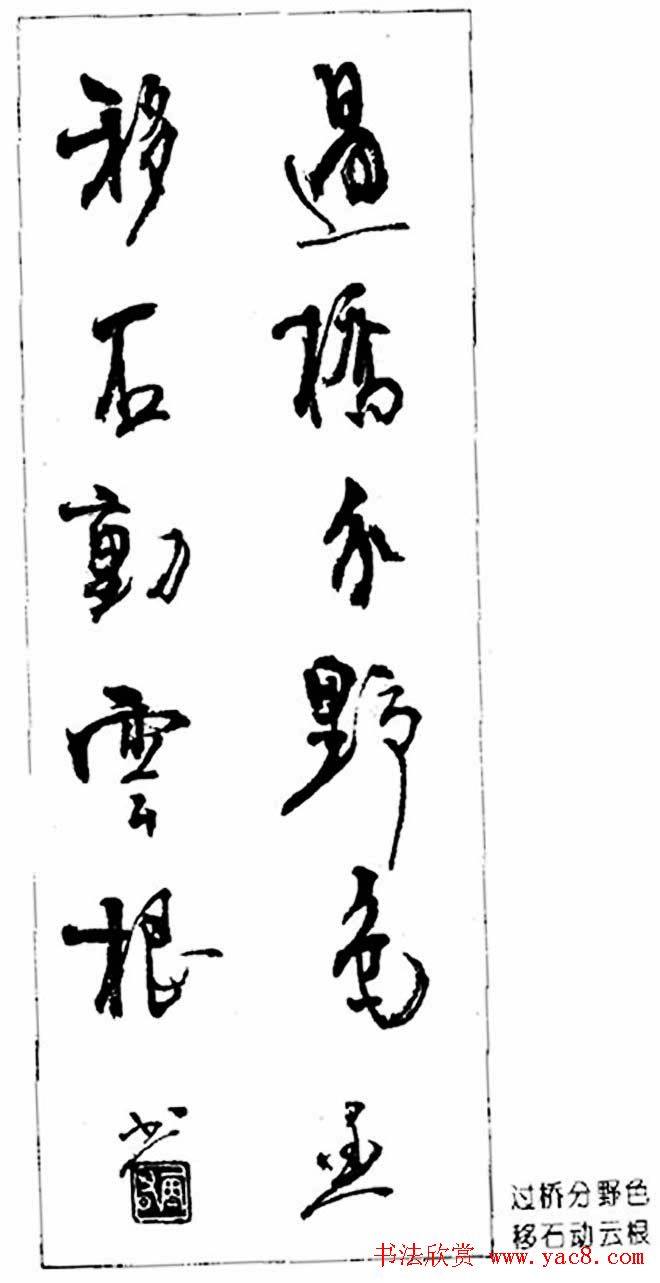 過橋分野色
移石動雲根
过桥分野色
移石动云根
书法欣赏 www.yac8.com